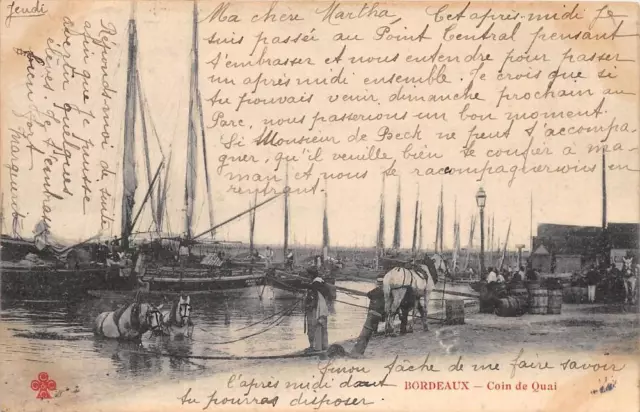 Jeudi
Ma chère Martha, Cet après-midi Je
suis passée au Point Central pensant
t'embrasser et nous entendre pour passer
un après midi ensemble. Je crois que si
tu pouvais venir, dimanche prochain au
Parc, nous passerions un bon moment.
Si Monsieur de Beck ne peut t'accompa-
gner, qu'il veuille bien se confier à ma-
man et nous te raccompagnerions en
rentrant.
Réponds-moi de suite
afin que Je puisse
avertir quelques
élèves. Je t'embrasse
bien fort
Marguerite
sinon tâche de me faire savoir
l'après midi dont
tu pourras disposer.
BORDEAUX — Coin de Quai